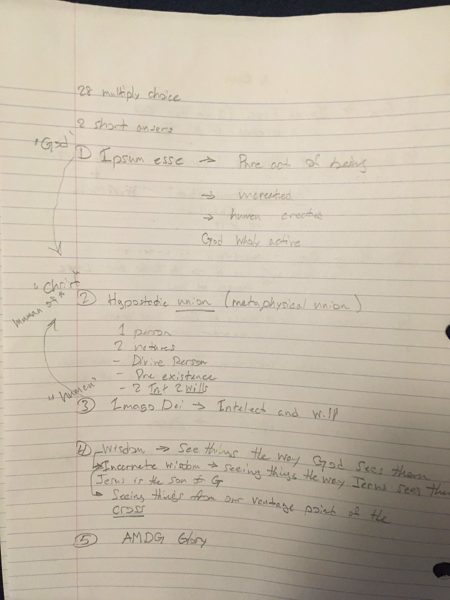 28 multiply choice
2 short answers
"God"
1) Ipsum esse → Pure act of being
→ uncreated
→ human
God wholy active
"Christ"
human
2) Hypostatic union (metaphysical union)
1 person
2 natures
- Divine Person
- Pre existence
- 2 Int 2 wills
"human"
3) Imago Dei → Intelect and will
4) - Wisdom → See things the way God sees them
→ Incarnate wisdom → seeing things the way Jesus sees them
Jesus is the son of G
→ Seeing things from our ventage point of the
cross
5) AMDG Glory